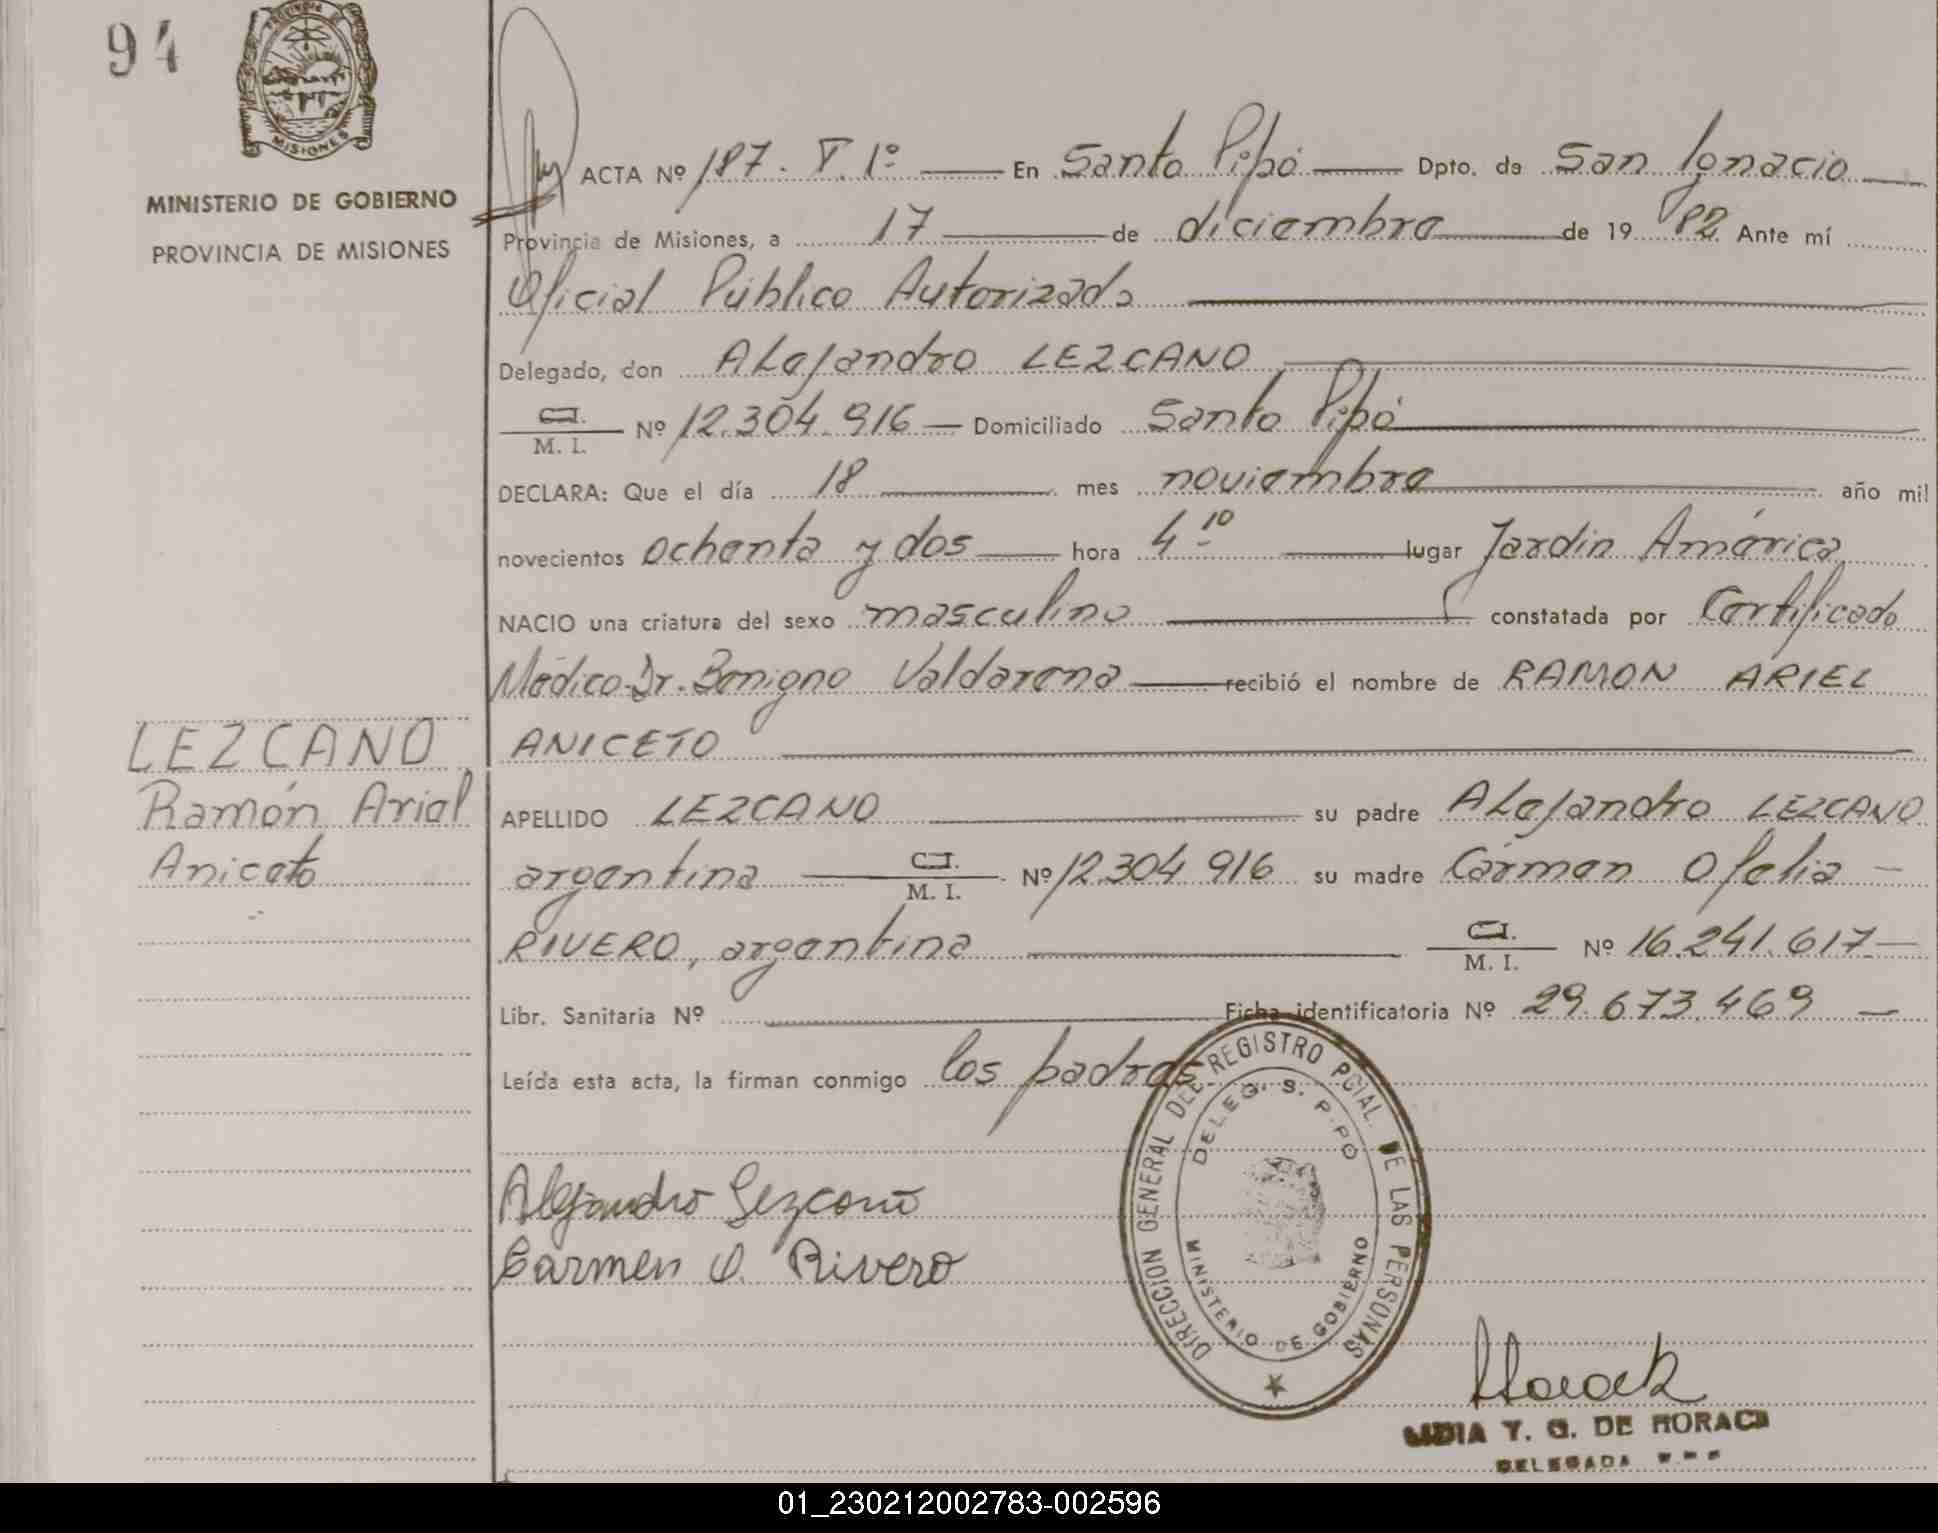 94
PROVINCIA DE
MISIONES
MINISTERIO DE GOBIERNO
PROVINCIA DE MISIONES
ACTA Nº 187. T. 1º En Santo Pipó Dpto. de San Ignacio
Provincia de Misiones, a 17 de diciembre de 19 82 Ante mí
Oficial Público Autorizado
Delegado, don Alejandro LEZCANO
C.I.
M. I. Nº 12.304.916 Domiciliado Santo Pipó
DECLARA: Que el día 18 mes noviembre año mil
novecientos ochenta y dos hora 4 10 lugar Jardín América
NACIO una criatura del sexo masculino constatada por Certificado
Médico-Dr. Benigno Valdarena recibió el nombre de RAMON ARIEL
ANICETO
LEZCANO
Ramón Ariel
Aniceto
APELLIDO LEZCANO su padre Alejandro LEZCANO
argentina C.I. M. I. Nº 12.304.916 su madre Cármen Ofelia
RIVERO, argentina C.I. M. I. Nº 16.241.617
Libr. Sanitaria Nº Ficha identificatoria Nº 29.673.469
Leída esta acta, la firman conmigo los padres
Alejandro Lezcano
Carmen O. Rivero
DIRECCION GENERAL DEL REGISTRO PCIAL. DE LAS PERSONAS
DELEG. S. P.PO
MINISTERIO DE GOBIERNO
LIDIA Y. G. DE HORACK
DELEGADA
01_230212002783-002596